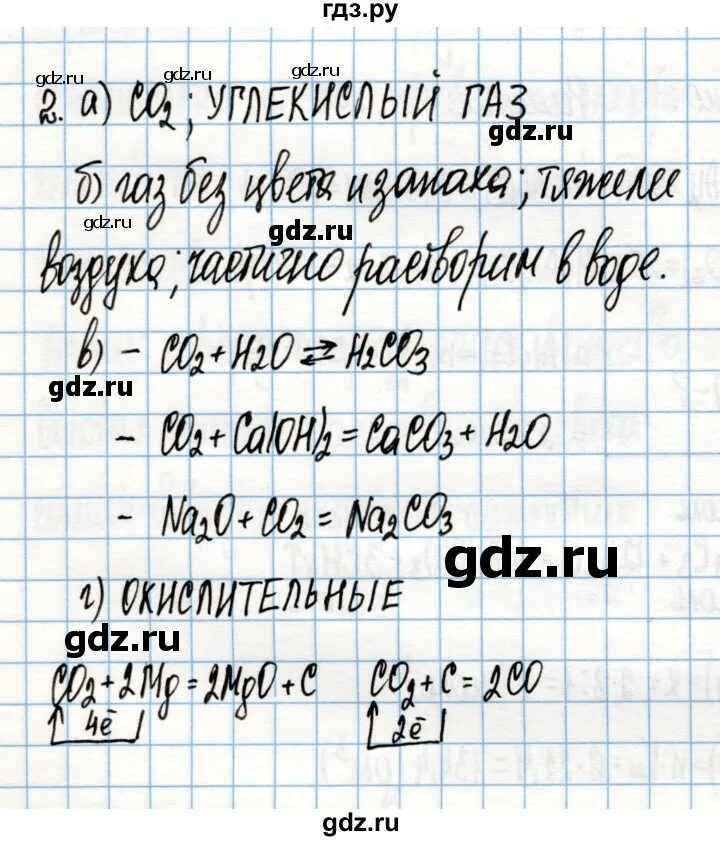 гдз.ру
gdz.ru gdz.ru gdz.ru
2. а) CO₂; УГЛЕКИСЛЫЙ ГАЗ
gdz.ru
б) газ без цвета и запаха; тяжелее
gdz.ru gdz.ru
воздуха; частично растворим в воде.
в) – CO₂ + H2O ⇄ H₂CO₃
gdz.ru gdz.ru
– CO₂ + Ca(OH)₂ = CaCO₃ + H2O
– Na₂O + CO₂ = Na₂CO₃
gdz.ru
г) ОКИСЛИТЕЛЬНЫЕ
gdz.ru
CO₂ + 2Mg = 2MgO + C CO₂ + C = 2CO
4ē 2ē
gdz.ru
gdz.ru